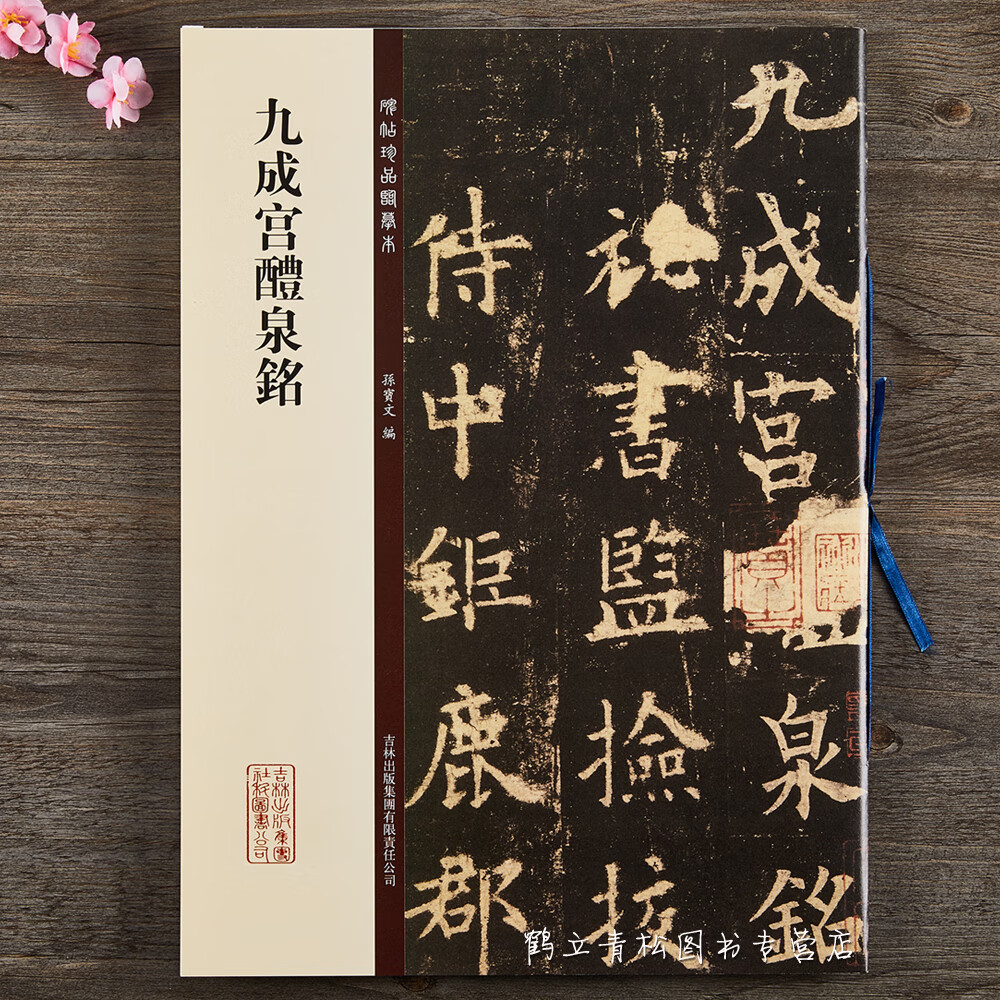 九成宫醴泉銘
碑帖珍品臨摹本
孫寳文 編
吉林出版集團有限責任公司
吉林出版集團
社科圖書公司
九成宫
泉銘
祕書監撿挍
侍中鉅鹿郡
鹤立青松图书专营店